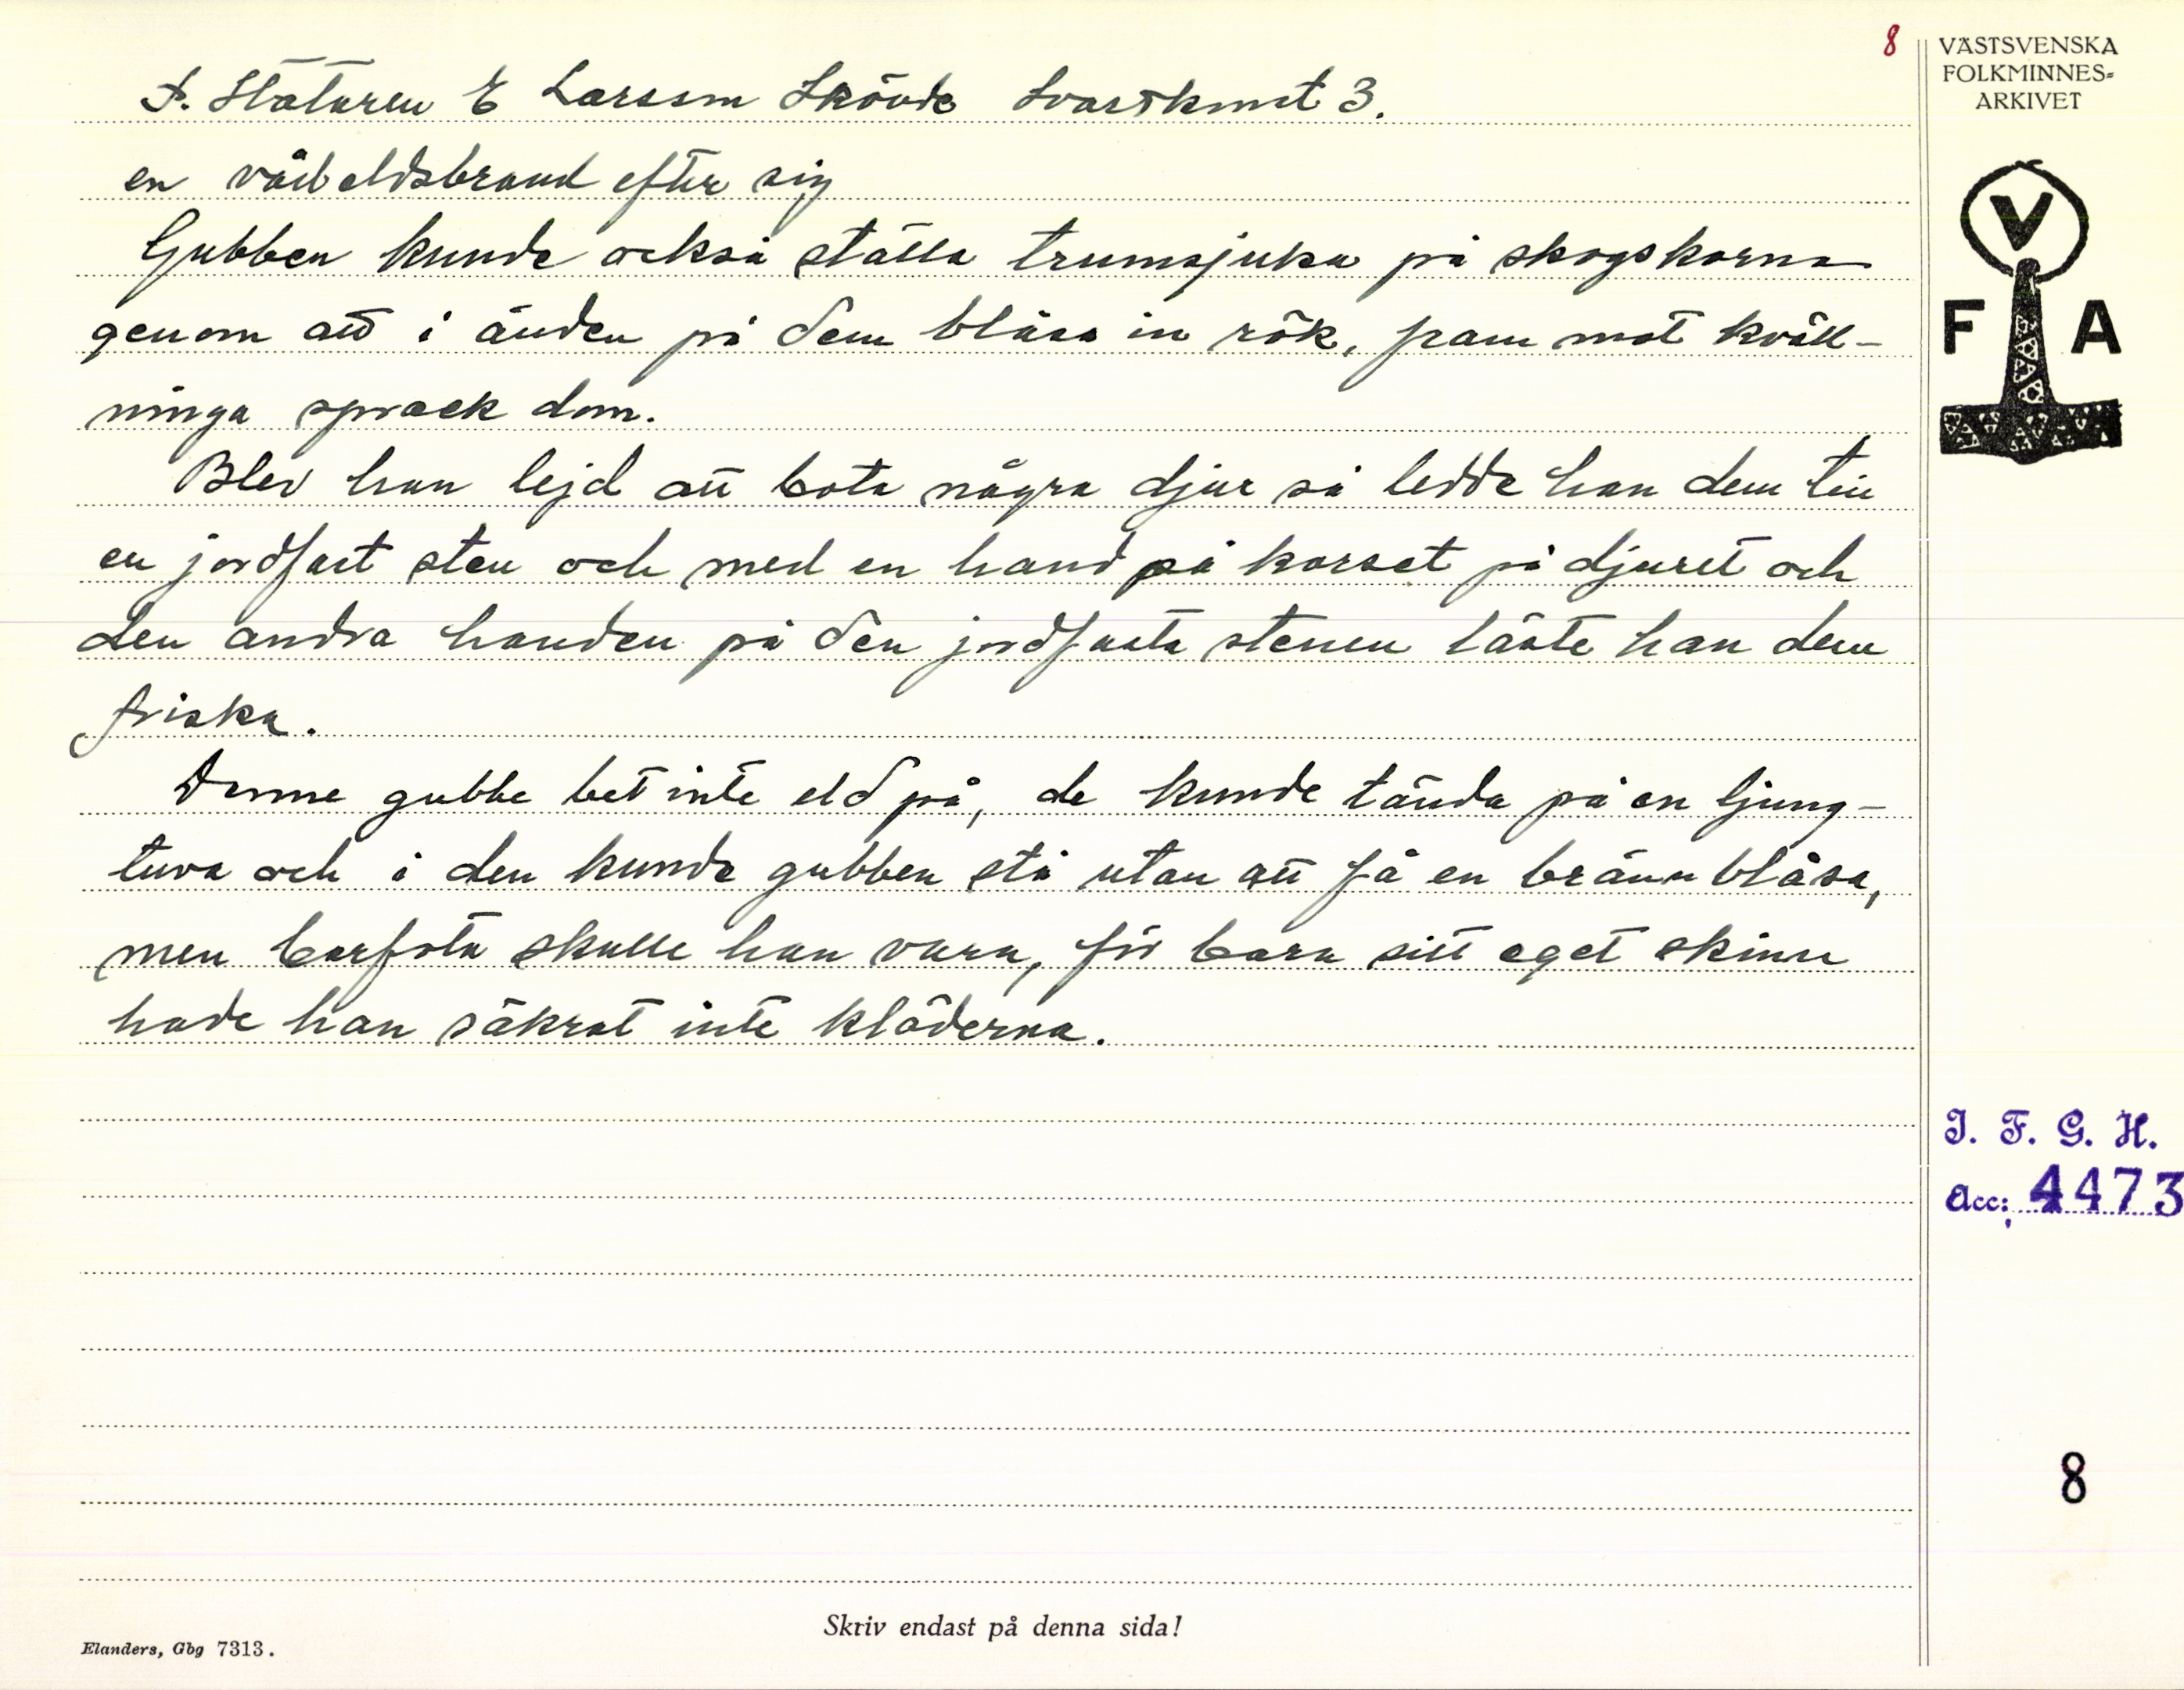 8
VÄSTSVENSKA
FOLKMINNES=
ARKIVET
V
F A
f. Stataren E Larsson Skövde Svartkonst 3.
en våldsbrand efter sig
Gubben kunde också ställa trumsjuka på skogskorna
genom att i änden på dem blåsa in rök, fram mot kväll-
ninga sprack dom.
Blev han lejd att bota några djur så ledde han dem till
en jordfast sten och med en hand på korset på djuret och
den andra handen på den jordfasta stenen läste han dem
friska.
Denne gubbe bet inte eld på, de kunde tända på en ljung-
tuva och i den kunde gubben stå utan att få en brännblåsa,
men barfota skulle han vara, för bara sitt eget skinn
hade han säkrat inte kläderna.
I. F. G. H.
Acc: 4473
8
Skriv endast på denna sida!
Elanders, Gbg 7313.